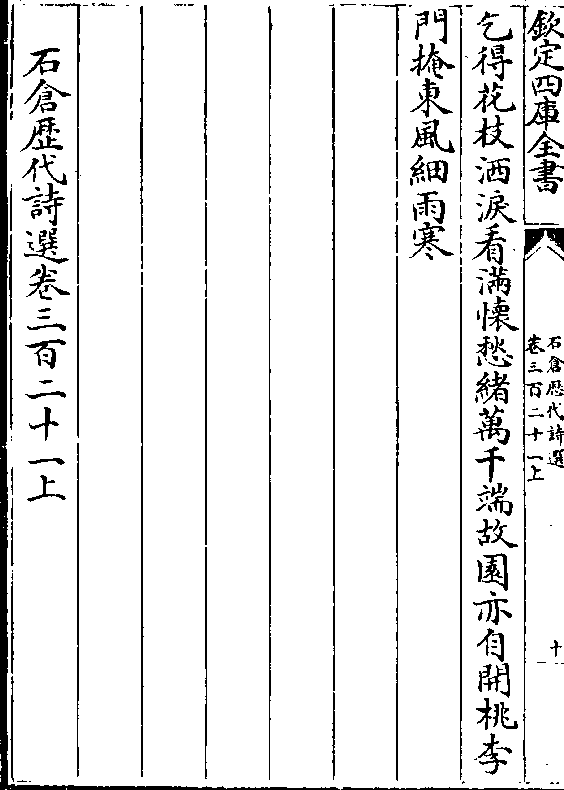 欽定四庫全書
石倉歴代詩選
卷三百二十一上
十
乞得花枝洒淚看滿懐愁緒萬千端故園亦自開桃李
門掩東風細雨寒
石倉歴代詩選卷三百二十一上